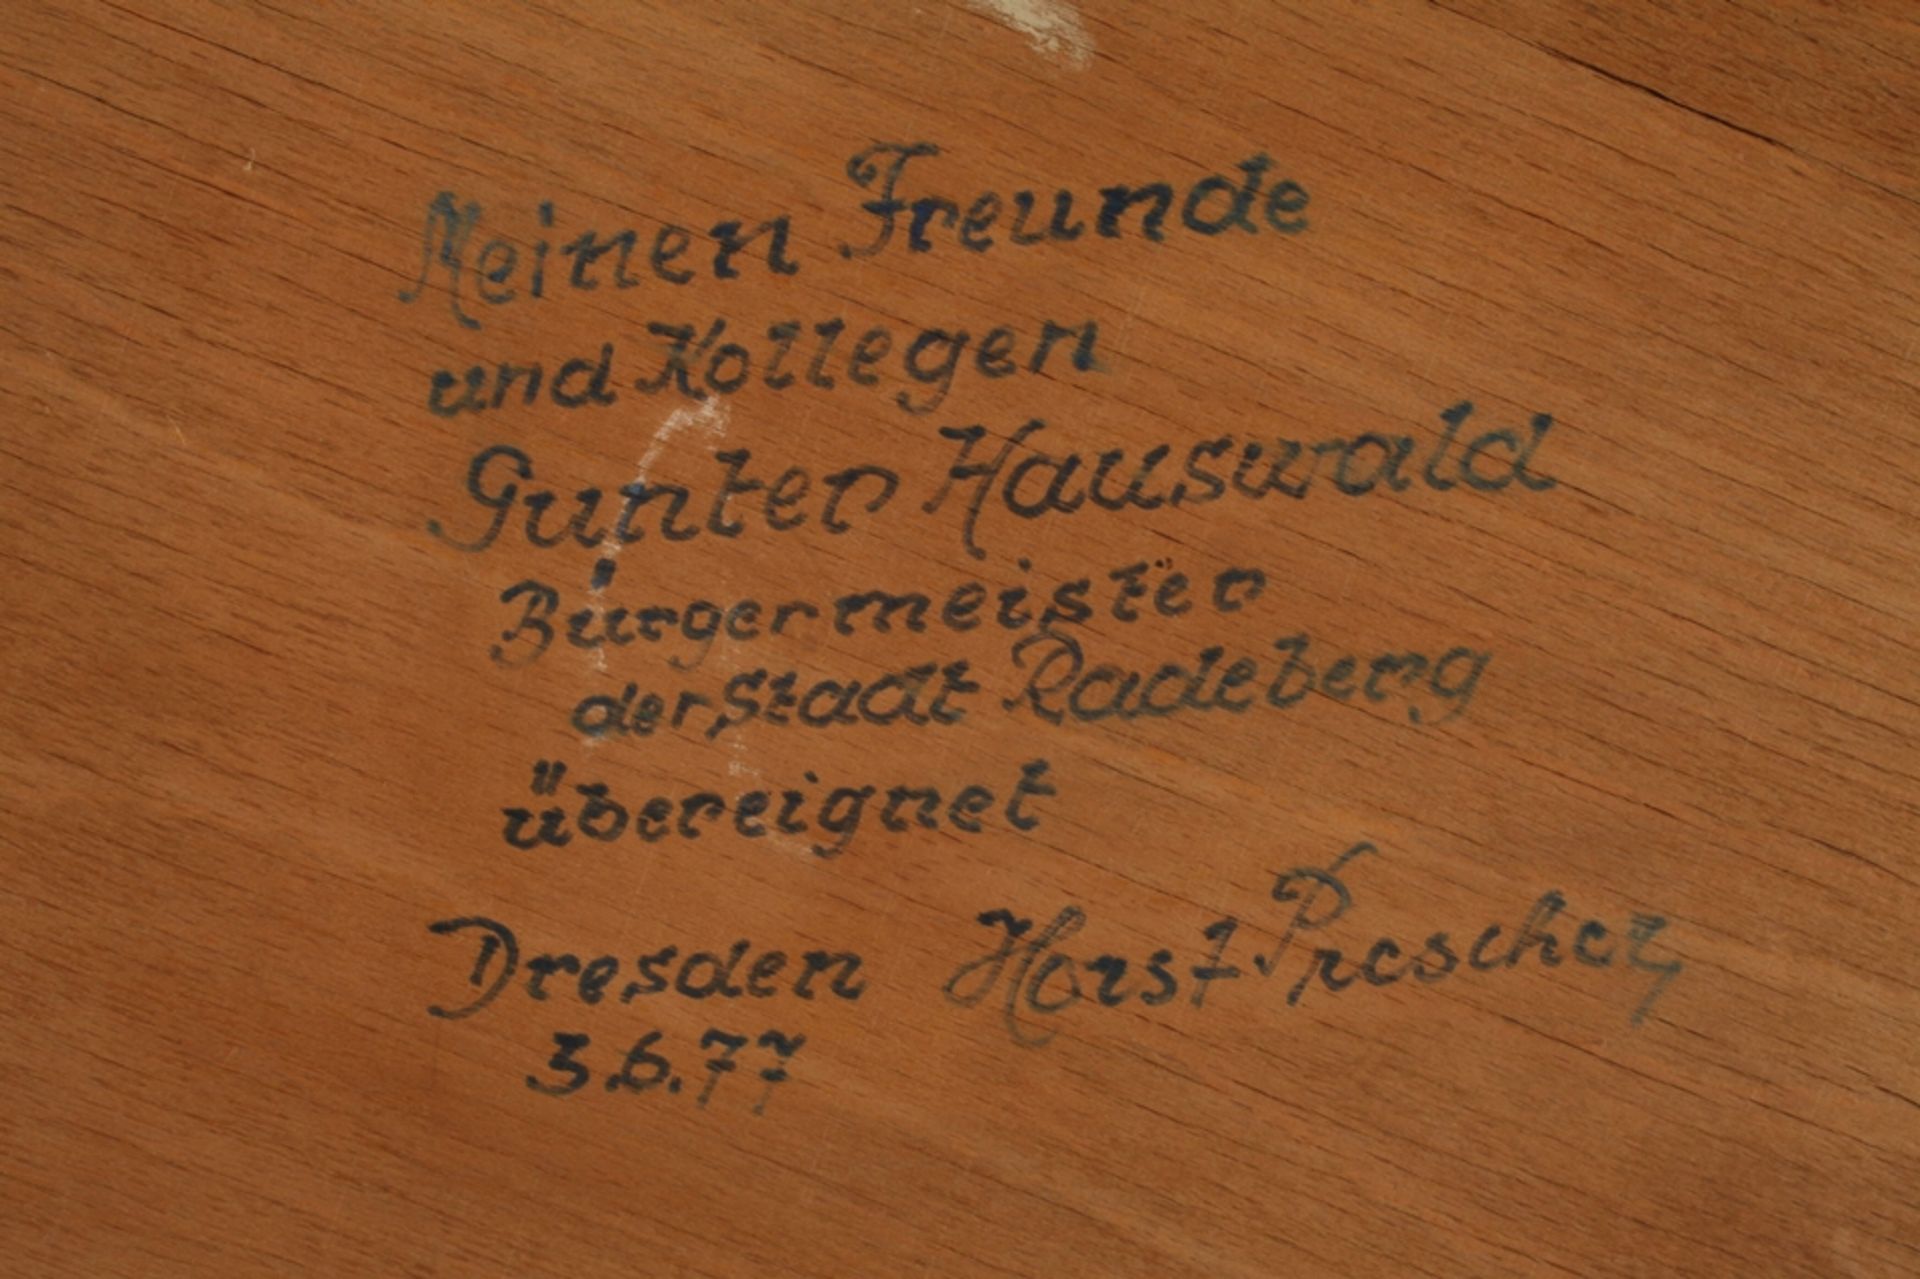 Meinen Freunde
und Kollegen
Gunter Hauswald
Bürgermeister
der Stadt Radeberg
übereignet
Dresden Horst Prescher
3.6.77